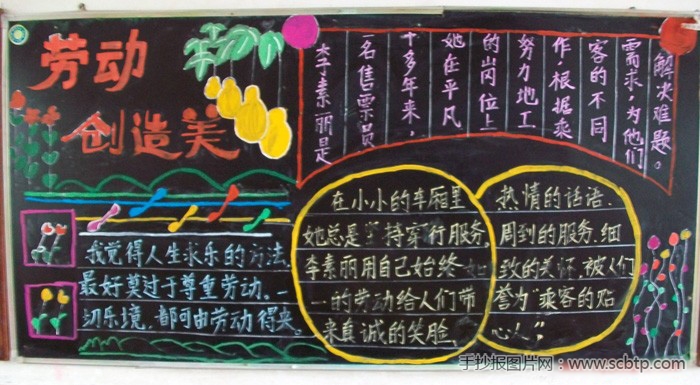 劳动
创造美
李素丽是
一名售票员
十多年来，
她在平凡
的岗位上
努力地工
作，根据乘
客的不同
需求，为他们
解决难题。
我觉得人生求乐的方法，
最好莫过于尊重劳动，
切乐境，都可由劳动得来。
在小小的车厢里
她总是坚持穿行服务，
李素丽用自己始终如
一的劳动给人们带
来真诚的笑脸，
热情的话语、
周到的服务、细
致的关怀，被人们
誉为“乘客的贴
心人”
手抄报图片网：www.scbtp.com